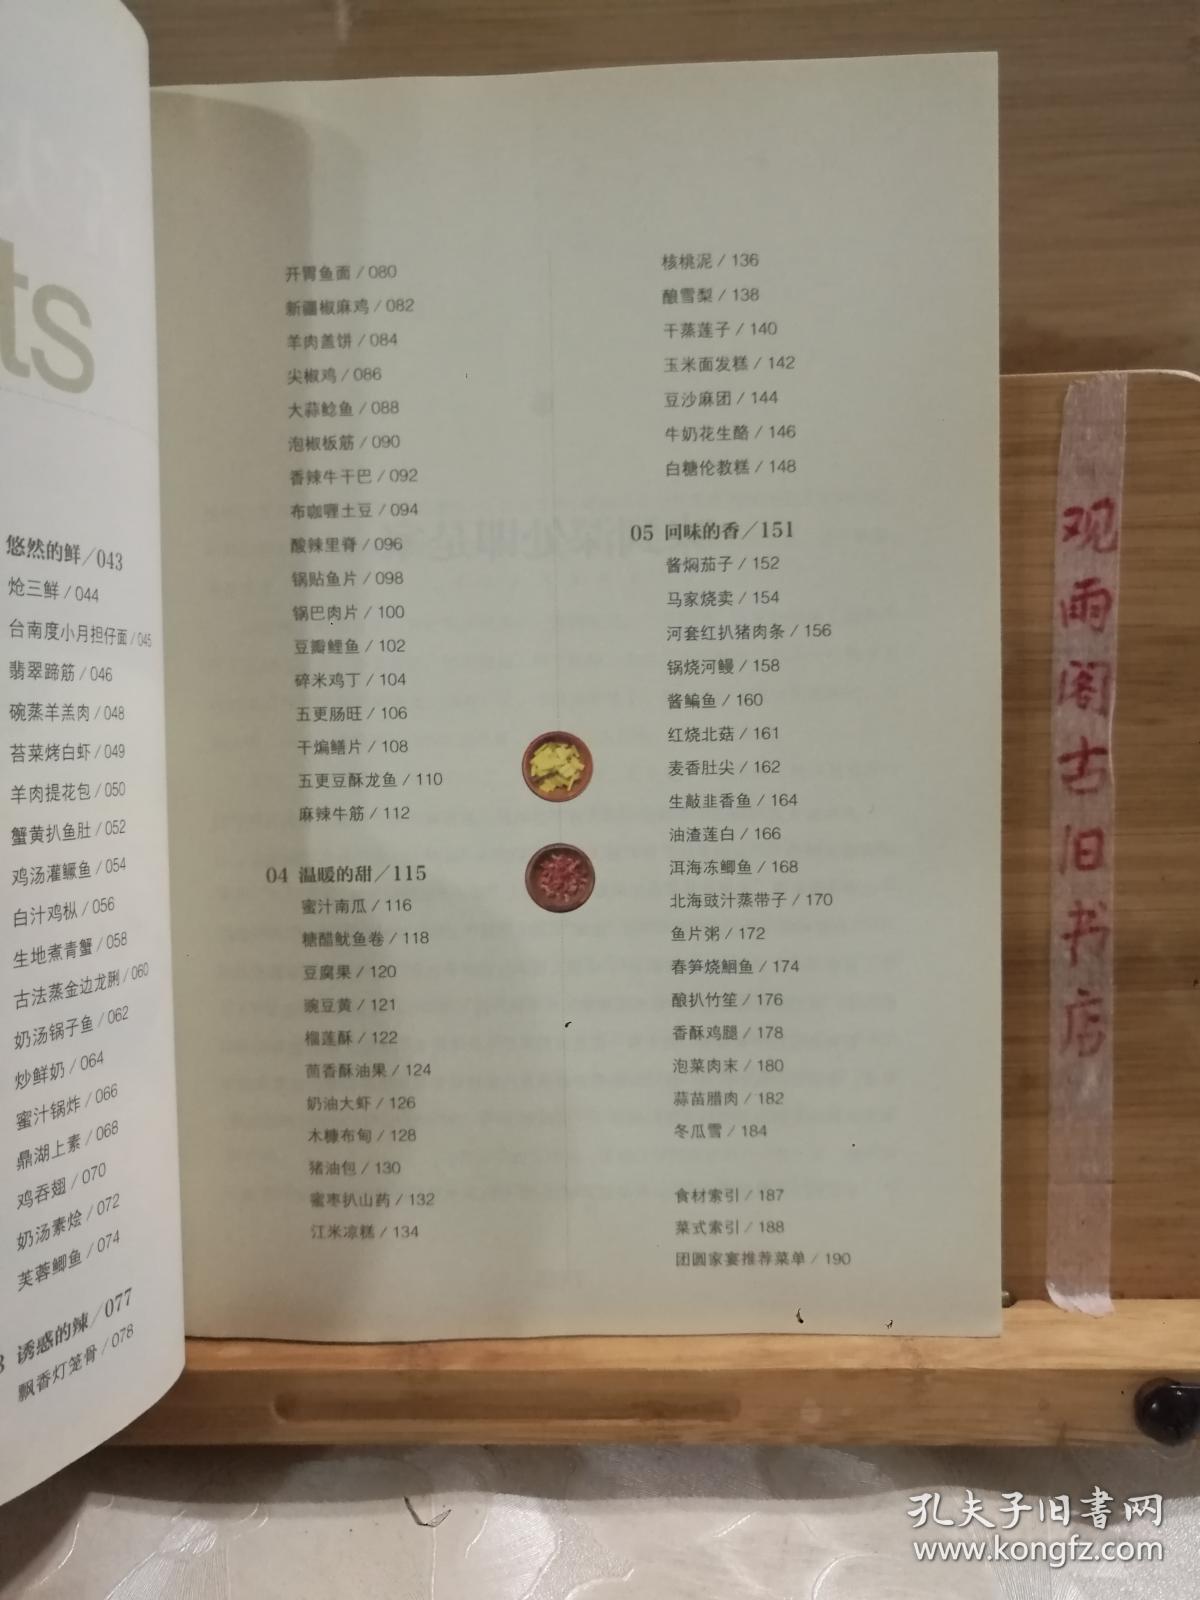 ts
悠然的鲜/043
炝三鲜/044
台南度小月担仔面/045
翡翠蹄筋/046
碗蒸羊羔肉/048
苔菜烤白虾/049
羊肉提花包/050
蟹黄扒鱼肚/052
鸡汤灌鳜鱼/054
白汁鸡枞/056
生地煮青蟹/058
古法蒸金边龙脷/060
奶汤锅子鱼/062
炒鲜奶/064
蜜汁锅炸/066
鼎湖上素/068
鸡吞翅/070
奶汤素烩/072
芙蓉鲫鱼/074
3 诱惑的辣/077
飘香灯笼骨/078
开胃鱼面/080
新疆椒麻鸡/082
羊肉盖饼/084
尖椒鸡/086
大蒜鲶鱼/088
泡椒板筋/090
香辣牛干巴/092
布咖喱土豆/094
酸辣里脊/096
锅贴鱼片/098
锅巴肉片/100
豆瓣鲤鱼/102
碎米鸡丁/104
五更肠旺/106
干煸鳝片/108
五更豆酥龙鱼/110
麻辣牛筋/112
04 温暖的甜/115
蜜汁南瓜/116
糖醋鱿鱼卷/118
豆腐果/120
豌豆黄/121
榴莲酥/122
茴香酥油果/124
奶油大虾/126
木糠布甸/128
猪油包/130
蜜枣扒山药/132
江米凉糕/134
核桃泥/136
酿雪梨/138
干蒸莲子/140
玉米面发糕/142
豆沙麻团/144
牛奶花生酪/146
白糖伦教糕/148
05 回味的香/151
酱焖茄子/152
马家烧卖/154
河套红扒猪肉条/156
锅烧河鳗/158
酱鳊鱼/160
红烧北菇/161
麦香肚尖/162
生敲韭香鱼/164
油渣莲白/166
洱海冻鲫鱼/168
北海豉汁蒸带子/170
鱼片粥/172
春笋烧鮰鱼/174
酿扒竹笙/176
香酥鸡腿/178
泡菜肉末/180
蒜苗腊肉/182
冬瓜雪/184
食材索引/187
菜式索引/188
团圆家宴推荐菜单/190
观雨阁古旧书店
孔夫子旧书网
www.kongfz.com